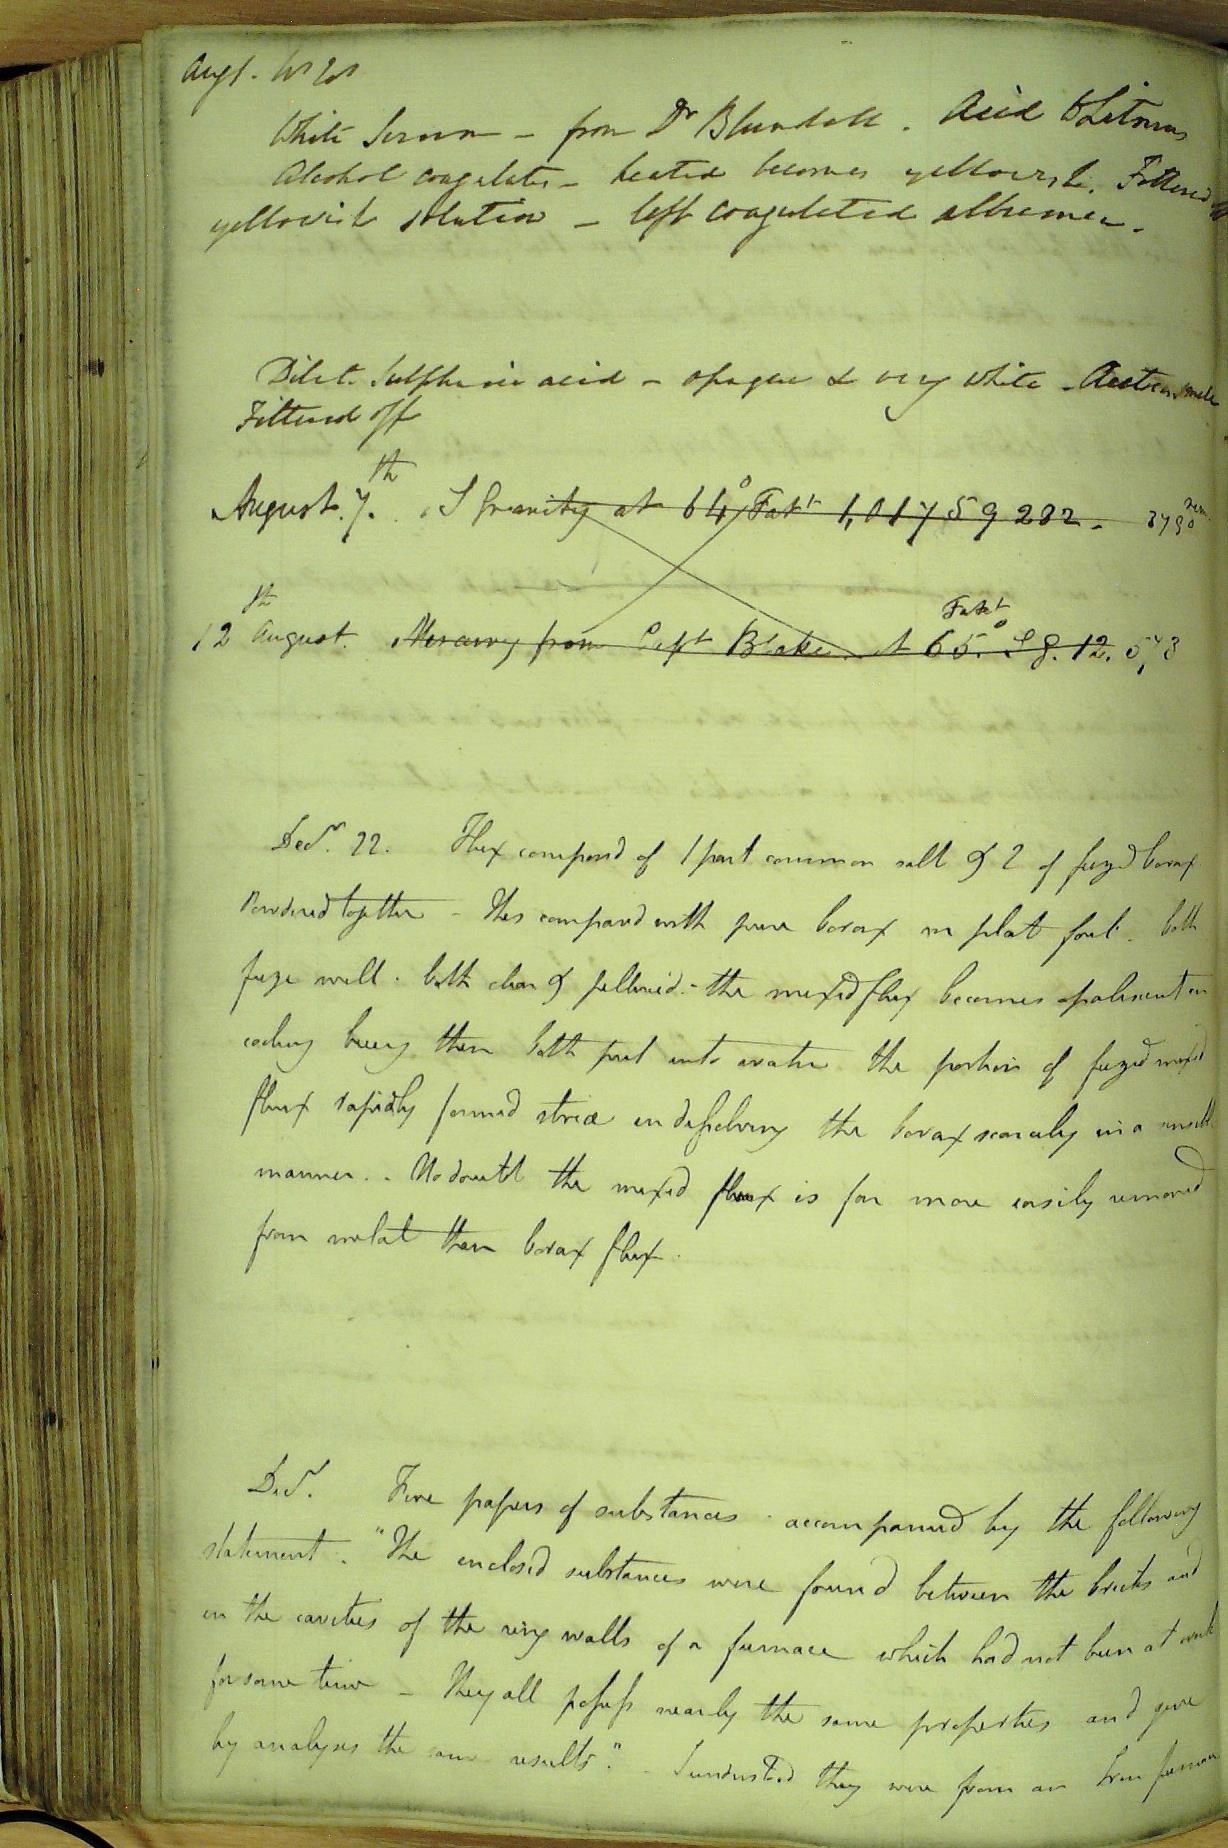 Augt.
White Serum – from Dr Blundell. Acid to Litmus
Alcohol coagulates – heated becomes yellowish. Filtered
yellowish solution – left coagulated albumen.
Dilt. Sulphuric acid – opaque & very white –
Filtered off
August. 7th. S Gravity at 64° Faht 1,01759282.
12th August. Mercury from Capt Blake. At 65° Faht S g. 12.
Decr. 22. Flux composed of 1 part common salt & 2 of fuzed borax
Powdered together – This compared with pure borax in plat foil. both
fuze well. both clear & pellucid. – the mixed flux becomes opalescent on
cooling being then both put into water the portion of fuzed mixed
flux rapidly formed striæ in dissolving the borax scarcely in a small
manner. . No doubt the mixed flux is far more easily removed
from metal than borax flux.
Decr. Five papers of substances accompanied by the following
statement. "The enclosed substances were found between the bricks and
in the cavities of the ring walls of a furnace which had not been at work
for some time – They all possess nearly the same properties and give
by analyses the same results." – I understood they were from an Iron furnace